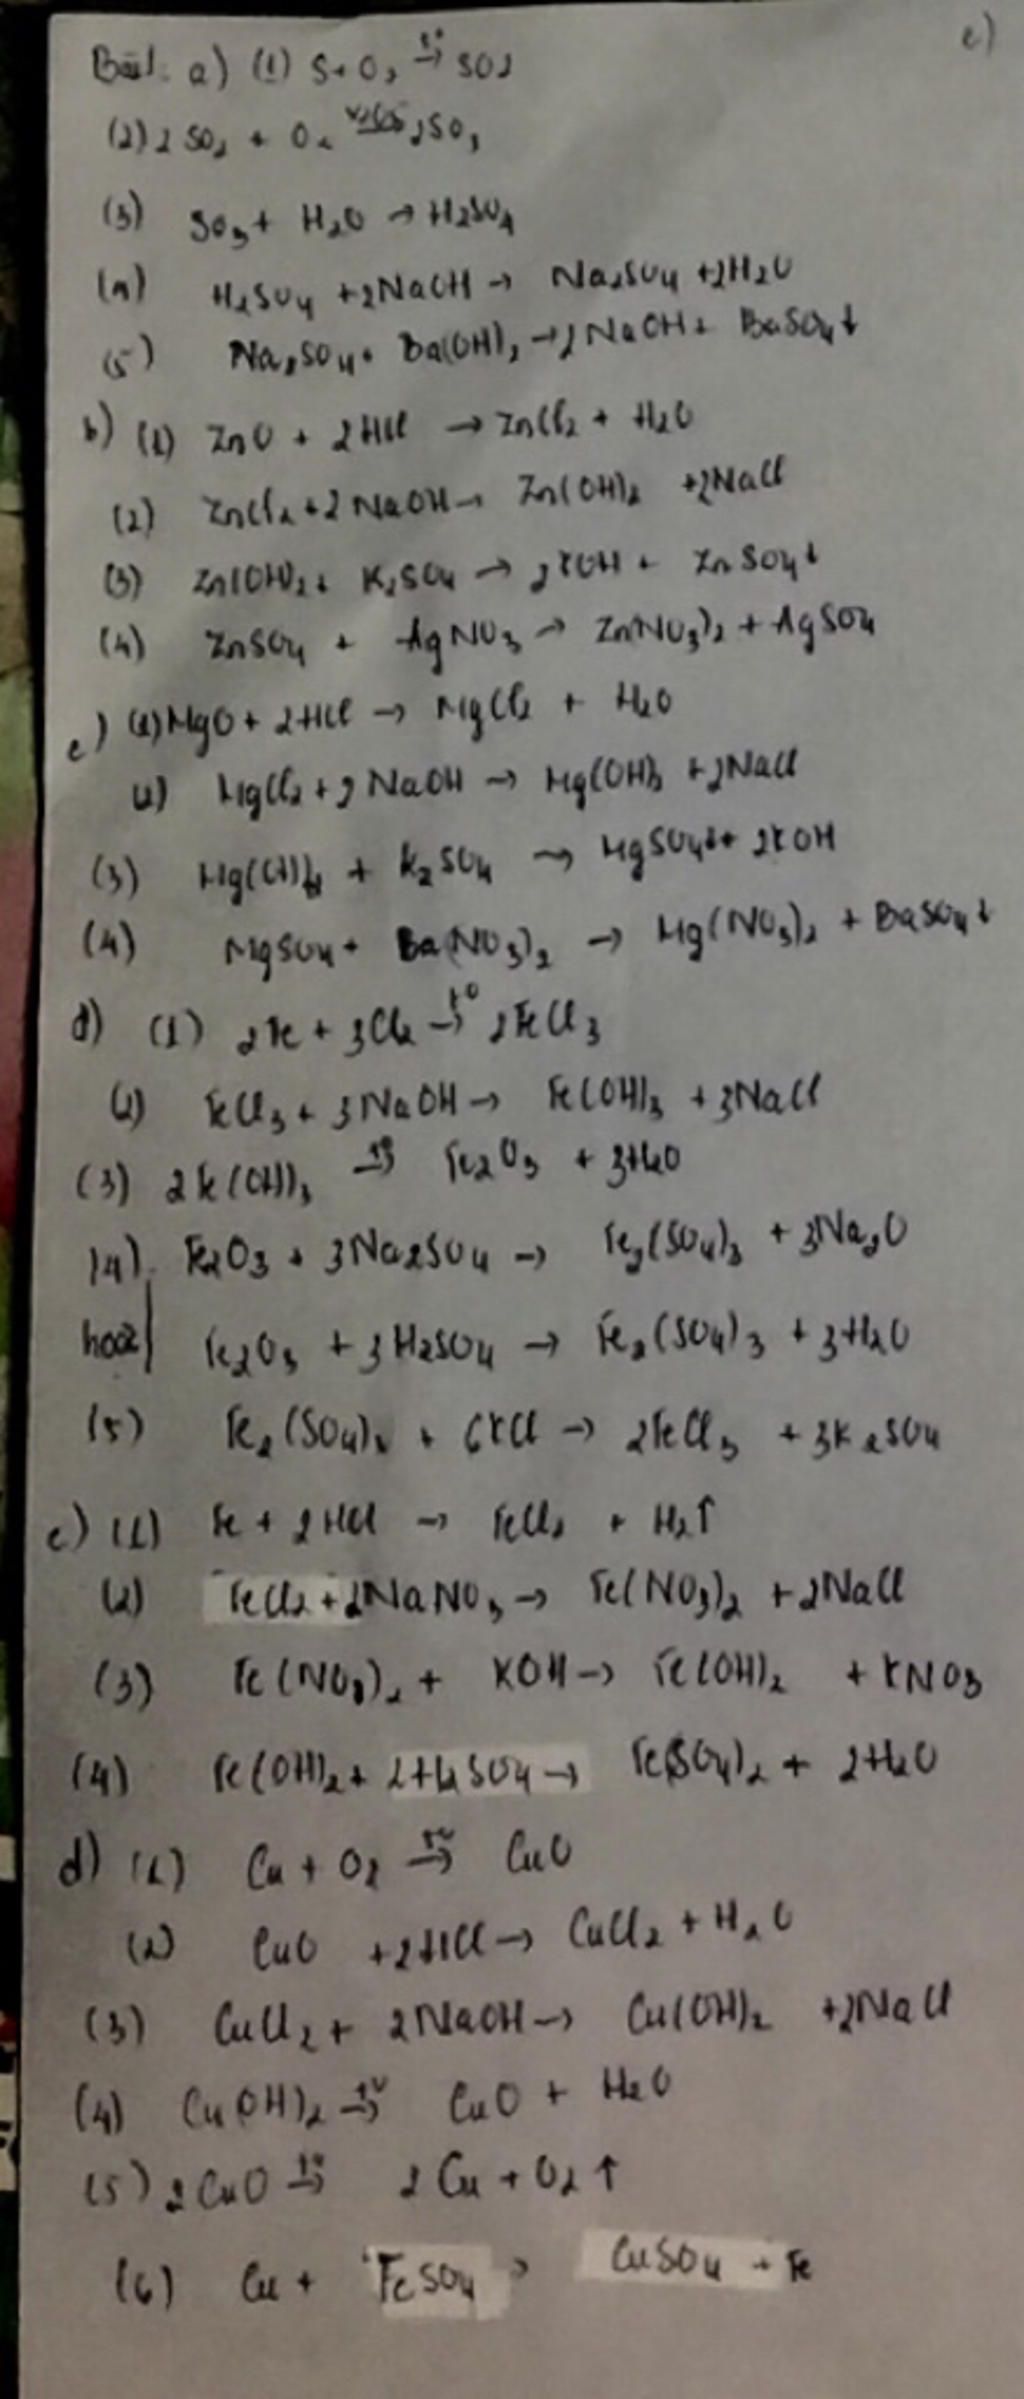 e)
Bài1: a) (1) S + O2 t°→ SO2
(2) 2 SO2 + O2 V2O5→ 2SO3
(3) SO3 + H2O → H2SO4
(4) H2SO4 + 2NaOH → Na2SO4 + 2H2O
(5) Na2SO4 + Ba(OH)2 → 2NaOH + BaSO4↓
b) (1) ZnO + 2HCl → ZnCl2 + H2O
(2) ZnCl2 + 2NaOH → Zn(OH)2 + 2NaCl
(3) Zn(OH)2 + K2SO4 → 2KOH + ZnSO4↓
(4) ZnSO4 + AgNO3 → Zn(NO3)2 + AgSO4
c) (1) MgO + 2HCl → MgCl2 + H2O
(2) MgCl2 + 2NaOH → Mg(OH)2 + 2NaCl
(3) Mg(OH)2 + K2SO4 → MgSO4↓ + 2KOH
(4) MgSO4 + Ba(NO3)2 → Mg(NO3)2 + BaSO4↓
d) (1) 2Fe + 3Cl2 t°→ 2FeCl3
(2) FeCl3 + 3NaOH → Fe(OH)3 + 3NaCl
(3) 2Fe(OH)3 t°→ Fe2O3 + 3H2O
(4) Fe2O3 + 3Na2SO4 → Fe2(SO4)3 + 3Na2O
hoặc Fe2O3 + 3H2SO4 → Fe2(SO4)3 + 3H2O
(5) Fe2(SO4)3 + 6KCl → 2FeCl3 + 3K2SO4
e) (1) Fe + 2HCl → FeCl2 + H2↑
(2) FeCl2 + 2NaNO3 → Fe(NO3)2 + 2NaCl
(3) Fe(NO3)2 + KOH → Fe(OH)2 + KNO3
(4) Fe(OH)2 + 2H2SO4 → Fe(SO4)2 + 2H2O
d) (1) Cu + O2 t°→ CuO
(2) CuO + 2HCl → CuCl2 + H2O
(3) CuCl2 + 2NaOH → Cu(OH)2 + 2NaCl
(4) Cu(OH)2 t°→ CuO + H2O
(5) 2CuO t°→ 2Cu + O2↑
(6) Cu + FeSO4 → CuSO4 + Fe